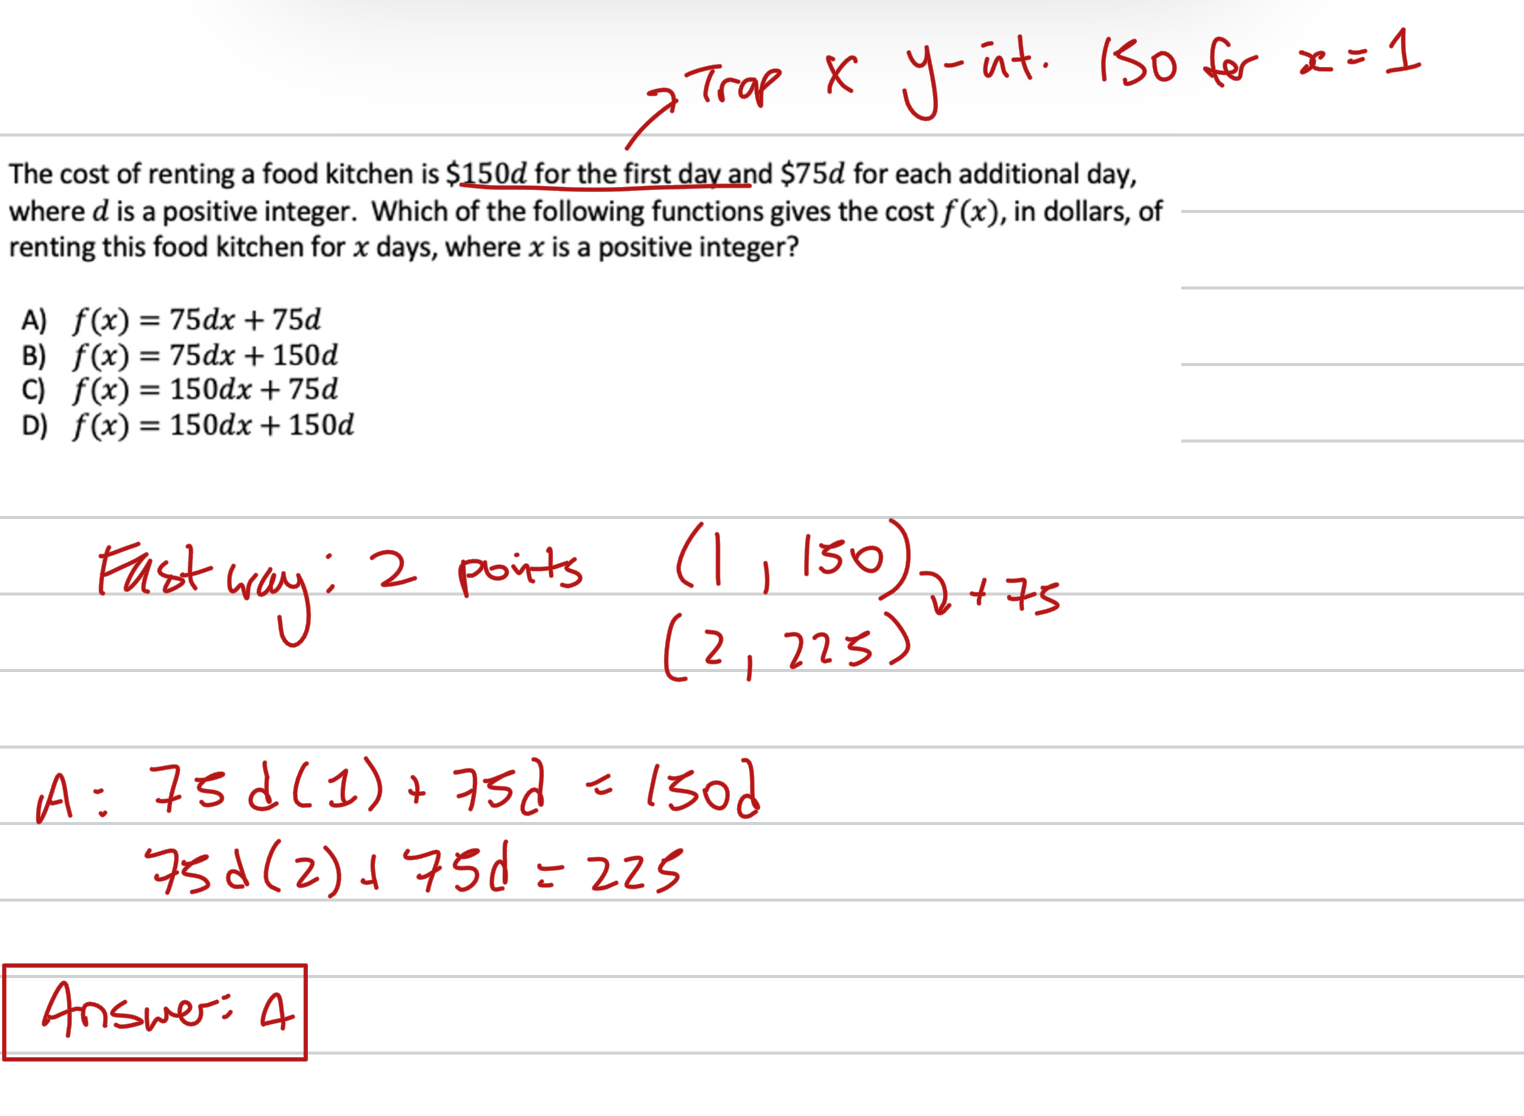 Trap x y-int. 150 for x = 1
The cost of renting a food kitchen is $150d for the first day and $75d for each additional day,
where d is a positive integer. Which of the following functions gives the cost f(x), in dollars, of
renting this food kitchen for x days, where x is a positive integer?
A) f(x) = 75dx + 75d
B) f(x) = 75dx + 150d
C) f(x) = 150dx + 75d
D) f(x) = 150dx + 150d
Fast way: 2 points (1, 150)
+75
(2, 225)
A: 75d(1) + 75d = 150d
75d(2) + 75d = 225
Answer: A